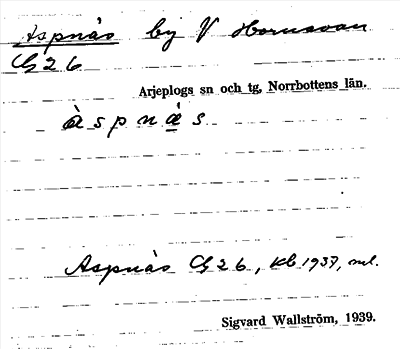 Aspnäs by V Hornavan
G 26
Arjeplogs sn och tg, Norrbottens län.
àspnä̀s
Aspnäs G 26, Kb 1937, ml.
Sigvard Wallström, 1939.